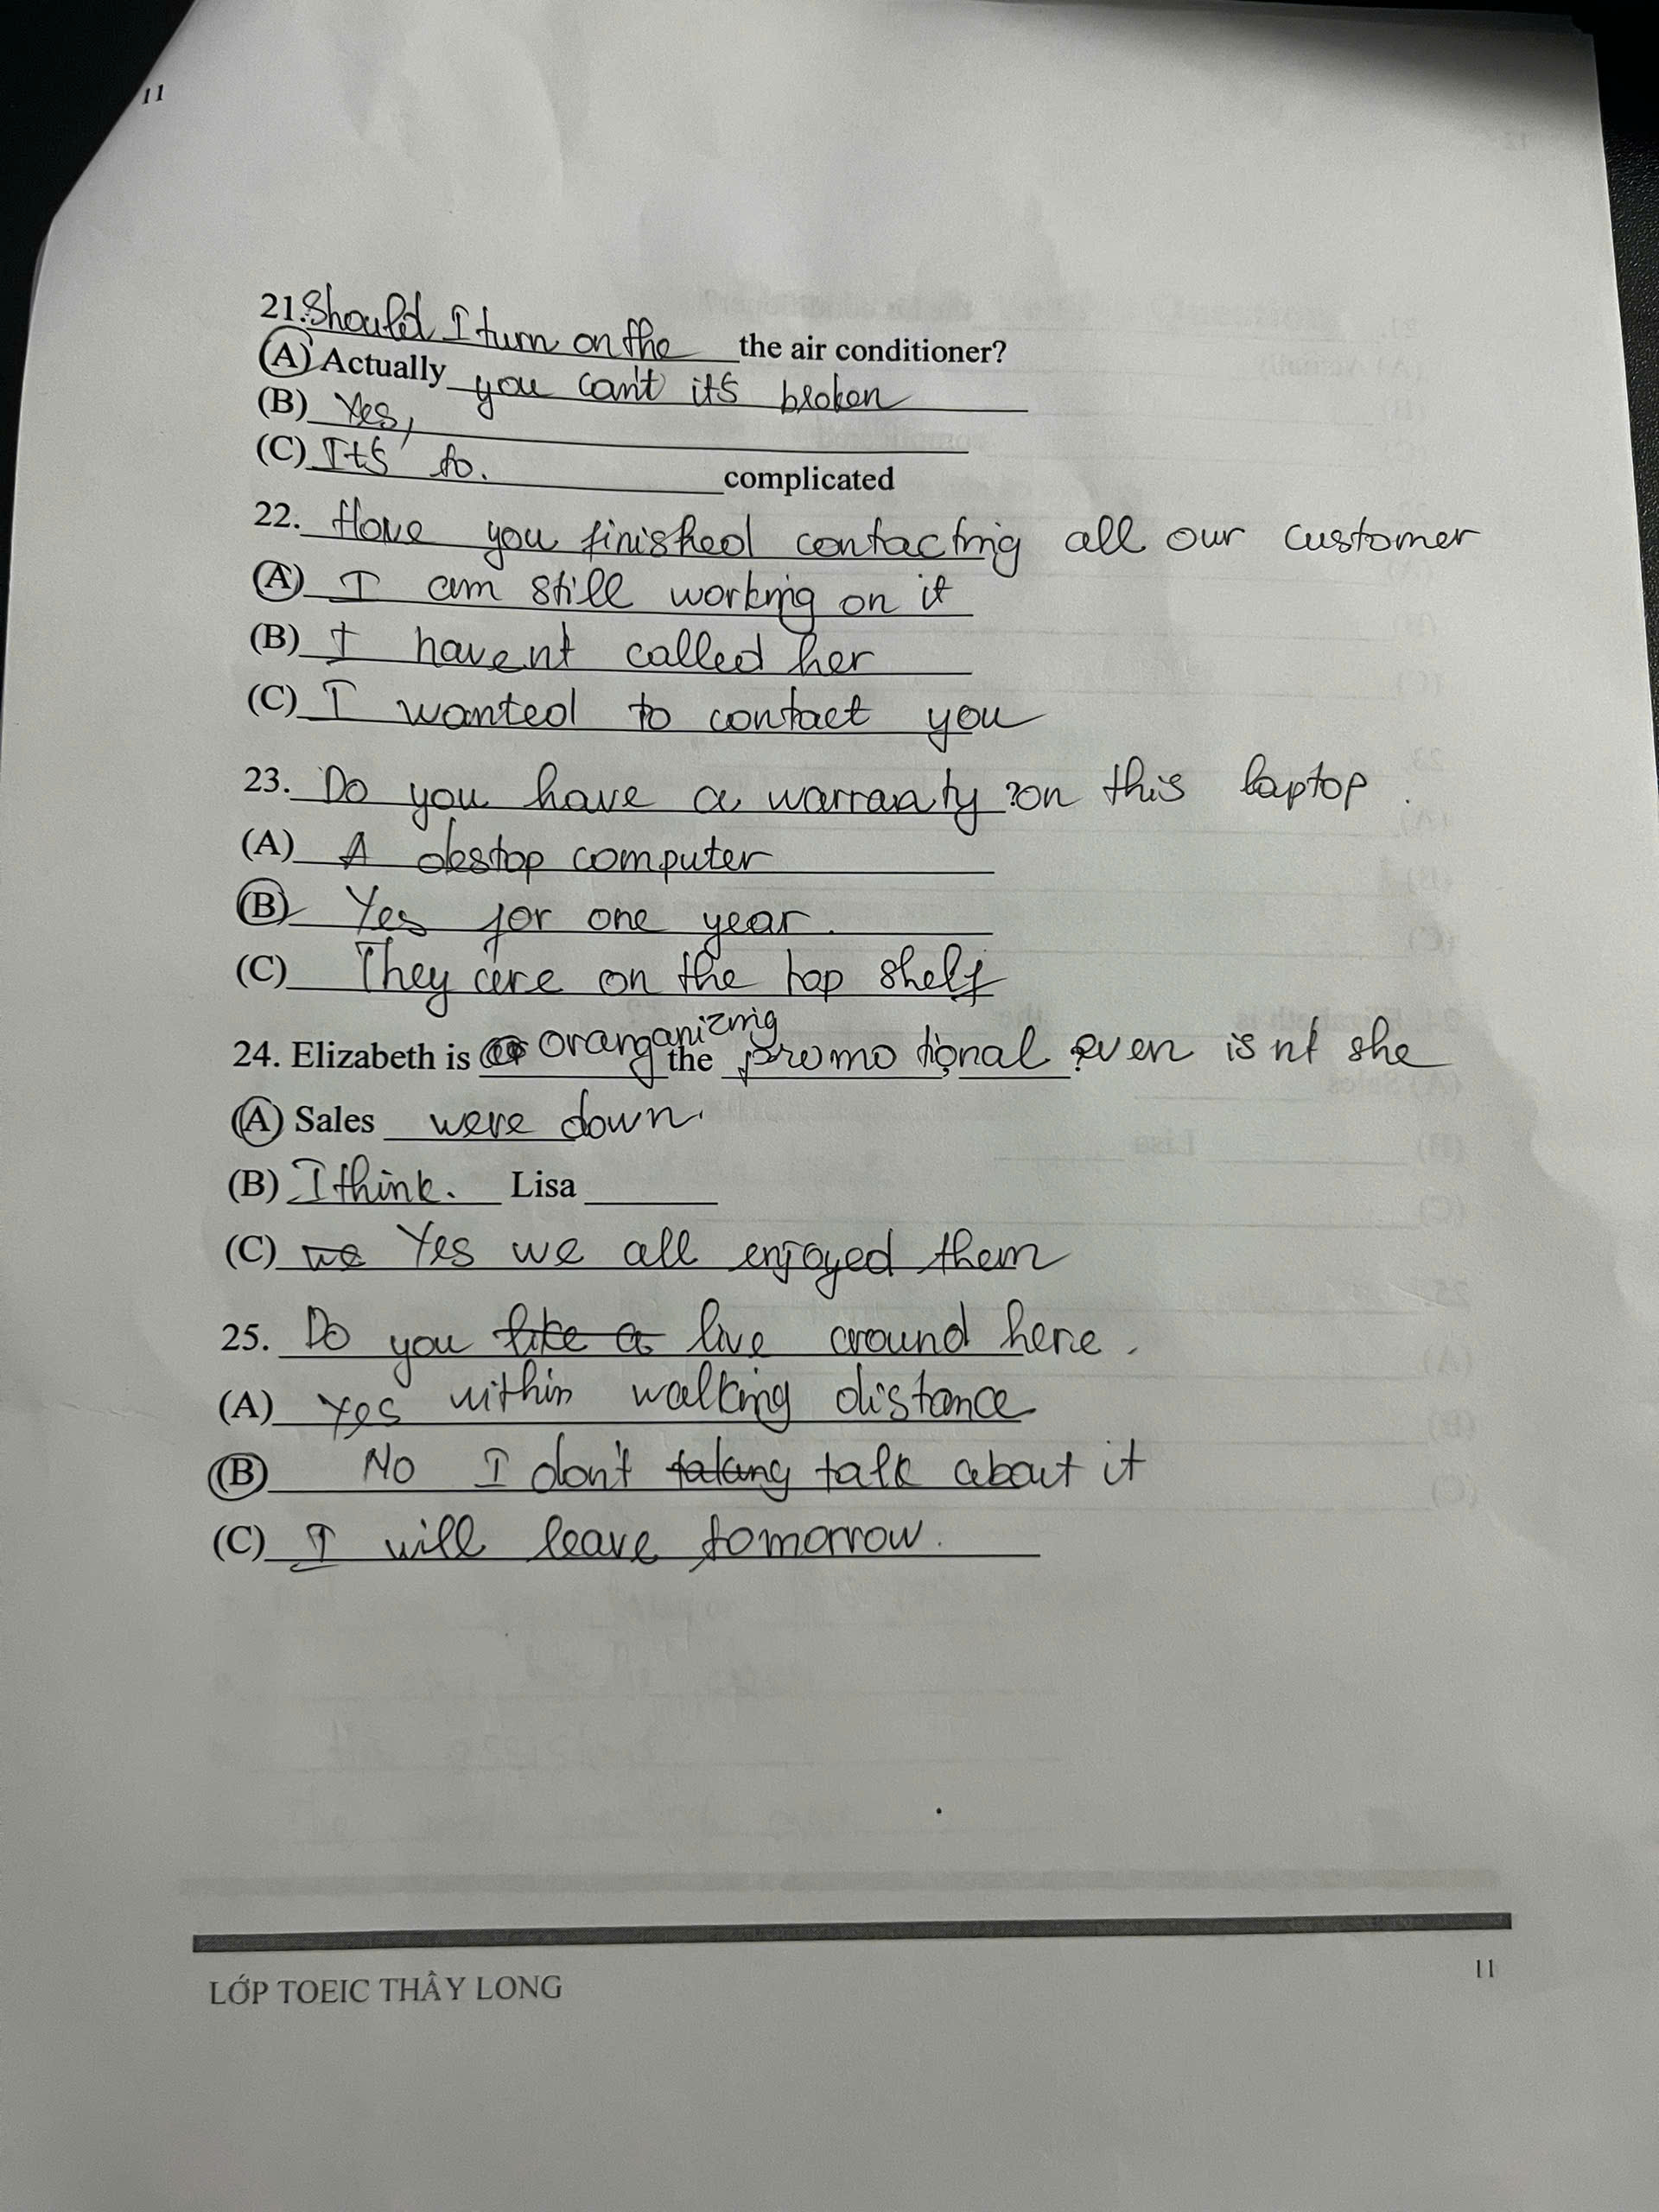 11
21. Should I turn on the the air conditioner?
(A) Actually you can't it's broken
(B) Yes,
(C) It's to. complicated
22. Have you finished contacting all our customer
(A) I am still working on it
(B) I havent called her
(C) I wanted to contact you
23. Do you have a warranty ? on this laptop.
(A) A destop computer
(B) Yes for one year.
(C) They are on the top shelf
24. Elizabeth is oranganizing the promotional even ? isnt she
(A) Sales were down.
(B) I think. Lisa
(C) we Yes we all enjoyed them
25. Do you like a live around here.
(A) Yes within walking distance
(B) No I don't taking talk about it
(C) I will leave tomorrow.
LỚP TOEIC THẦY LONG
11